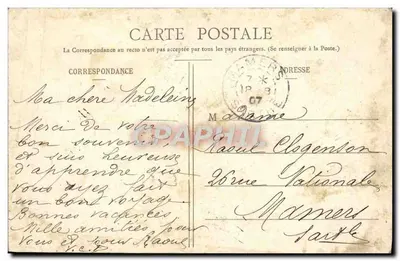 CARTE POSTALE
La Correspondance au recto n'est pas acceptée par tous les pays étrangers. (Se renseigner à la Poste.)
CORRESPONDANCE
ADRESSE
MAMERS
7
18 - 8
07
Ma chère Madeleine
Merci de votre
bon souvenir
et suis heureux
d'apprendre que
vous ayez fait
un bon voyage
Bonnes vacances
Mille amitiés pour
vous et Raoul
CPAPHIL
Madame
Raoul Elsgenson
26 rue Nationale
Mamers
Sarthe